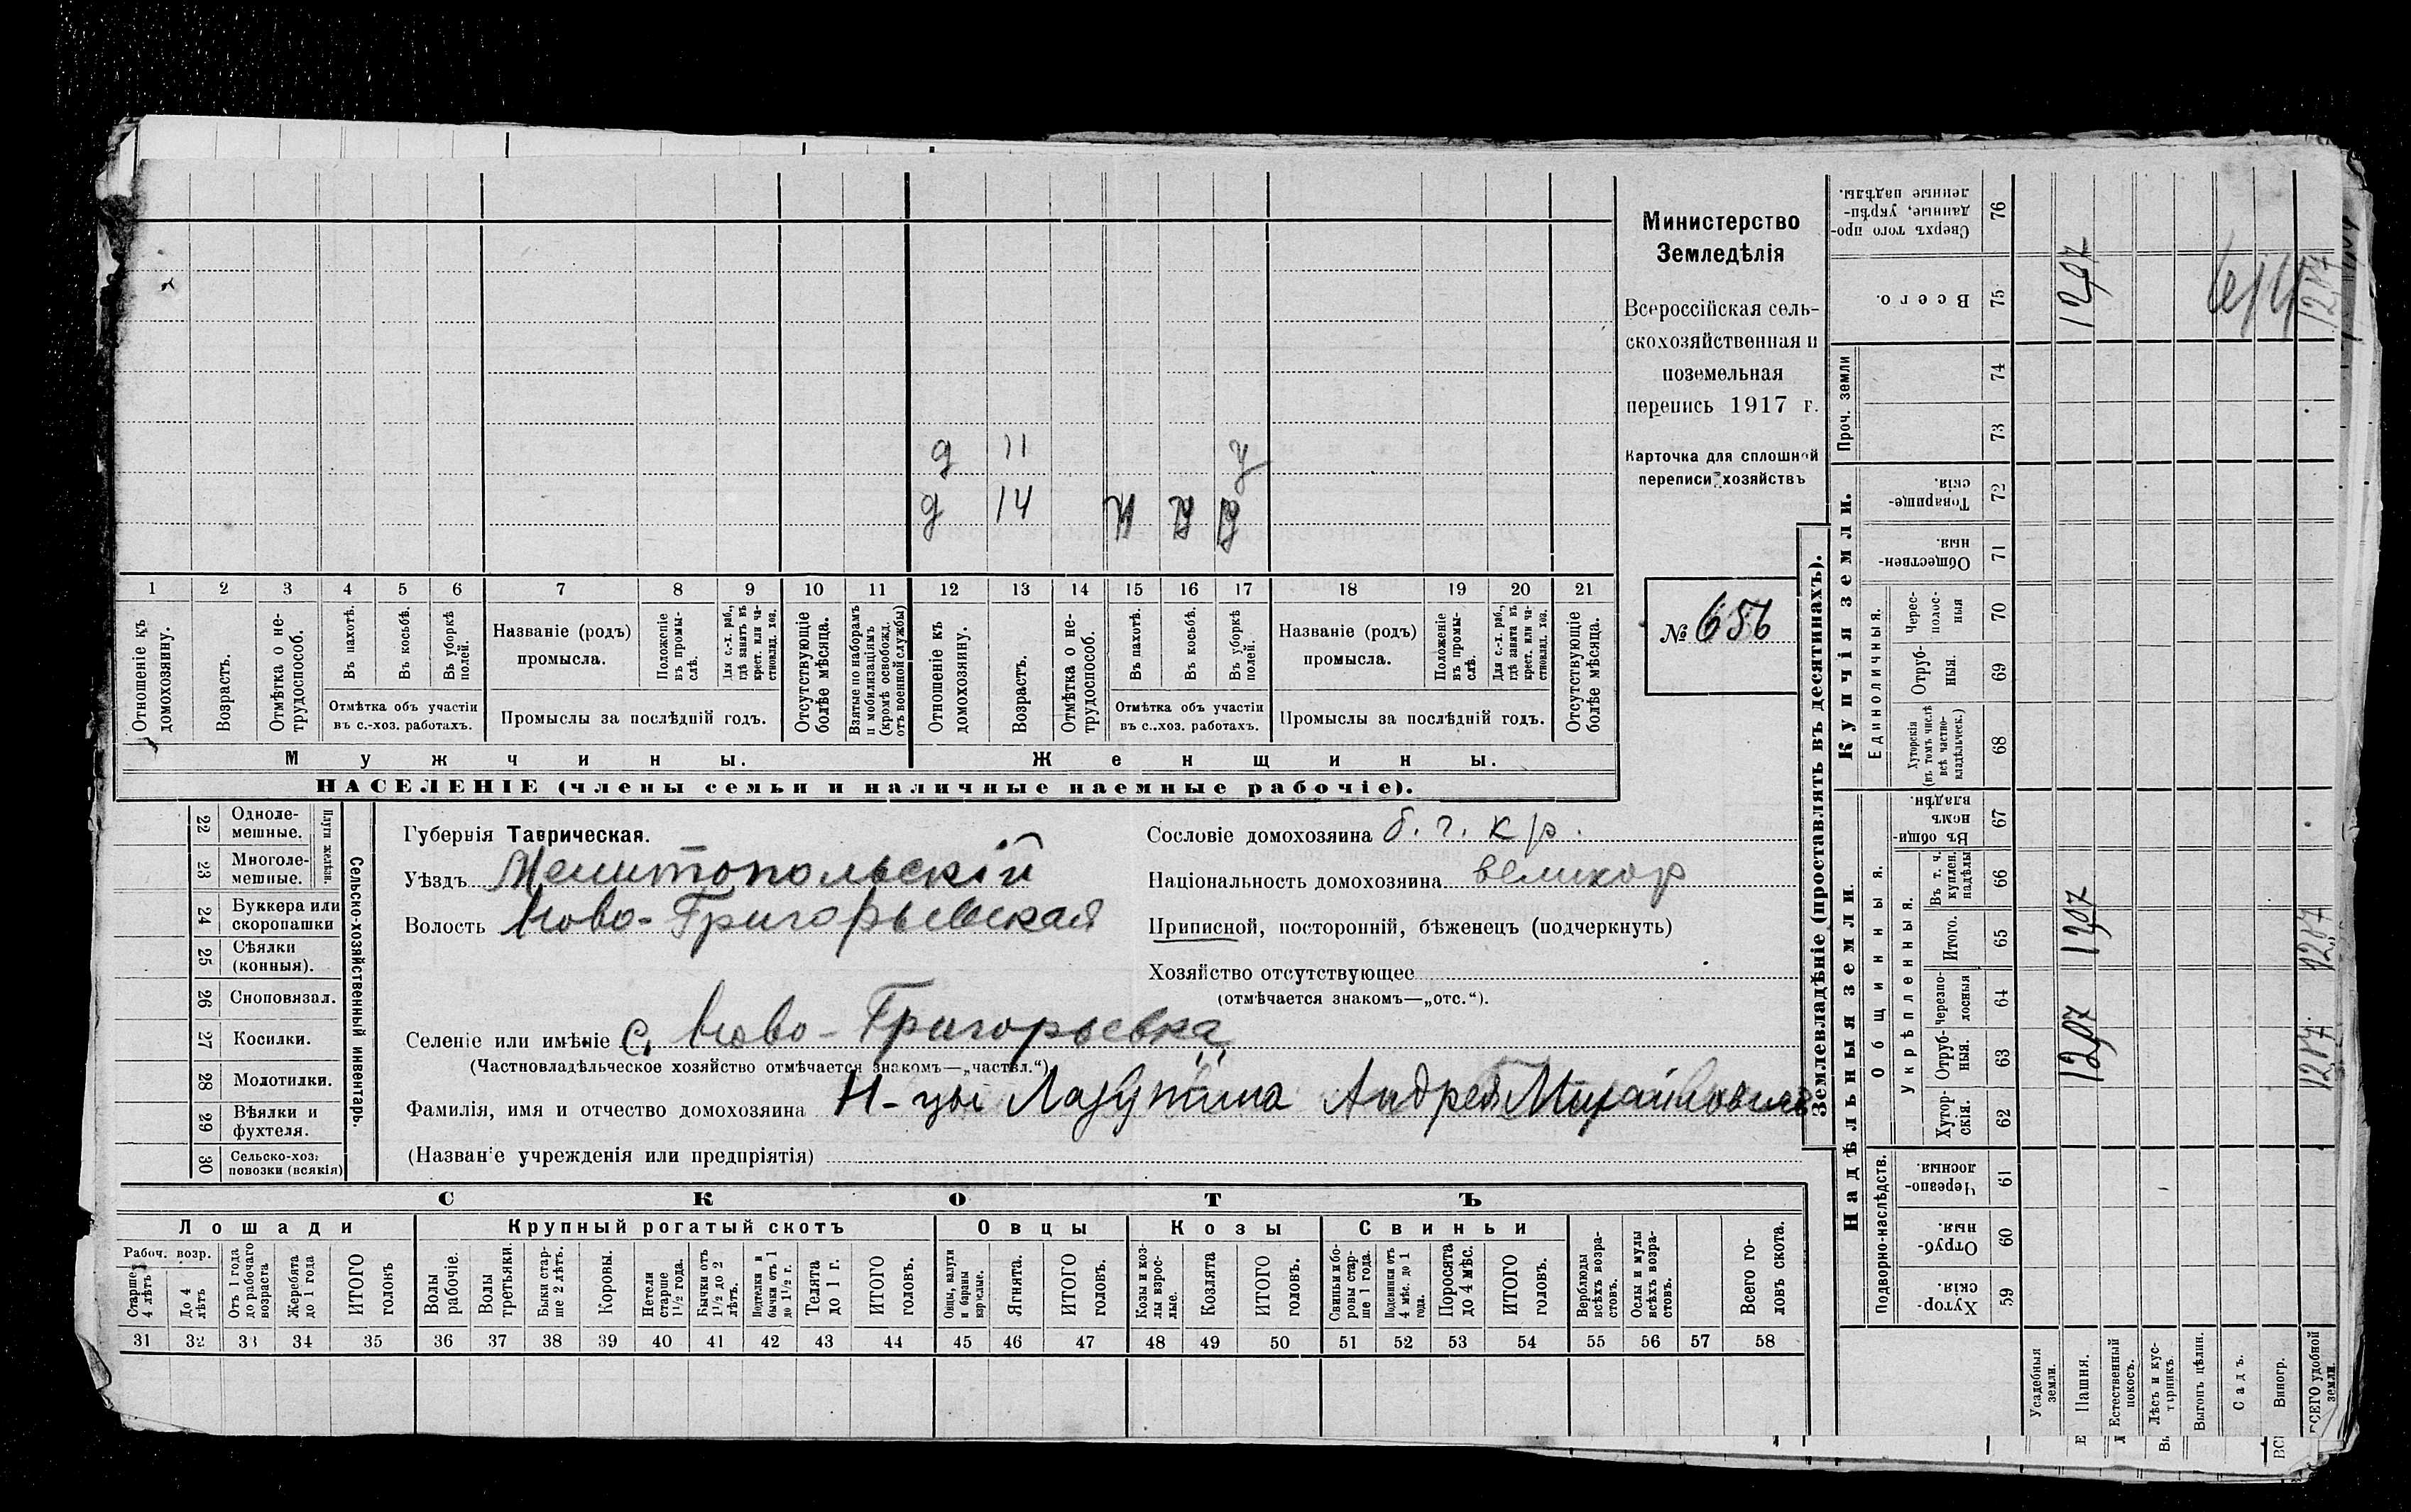 Министерство
Земледѣлія
Всероссійская сель-
скохозяйственная и
поземельная
перепись 1917 г.
Карточка для сплошной
переписи хозяйствъ
№ 656
д 11 у
д 14
1 2 3 4 5 6 7 8 9 10 11 12 13 14 15 16 17 18 19 20 21
Отношеніе къ домохозяину.
Возрастъ.
Отмѣтка о не-трудоспособ.
Въ пахотѣ.
Въ косьбѣ.
Въ уборкѣ полей.
Отмѣтка объ участіи
въ с.-хоз. работахъ.
Названіе (родъ)
промысла.
Положеніе въ промы-слѣ.
Для с.-х. раб., гдѣ занятъ въ крест. или ча-стновлад. хоз.
Промыслы за послѣдній годъ.
Отсутствующіе болѣе мѣсяца.
Взятые по наборамъ и мобилизаціямъ (кромѣ освобожд. отъ военной службы)
Отношеніе къ домохозяину.
Возрастъ.
Отмѣтка о не-трудоспособ.
Въ пахотѣ.
Въ косьбѣ.
Въ уборкѣ полей.
Отмѣтка объ участіи
въ с.-хоз. работахъ.
Названіе (родъ)
промысла.
Положеніе въ промы-слѣ.
Для с.-х. раб., гдѣ занята въ крест. или ча-стновлад. хоз.
Промыслы за послѣдній годъ.
Отсутствующіе болѣе мѣсяца.
Мужчины. Женщины.
НАСЕЛЕНІЕ (члены семьи и наличные наемные рабочіе).
Сельско-хозяйственный инвентарь.
Плуги желѣзн.
22 Одноле-мешные.
23 Многоле-мешные.
24 Буккера или скоропашки
25 Сѣялки (конныя).
26 Сноповязал.
27 Косилки.
28 Молотилки.
29 Вѣялки и фухтеля.
30 Сельско-хоз. повозки (всякія)
Губернія Таврическая.
Уѣздъ Мелитопольскій
Волость Ново-Григорьевская
Селеніе или имѣніе с. Ново-Григорьевка
(Частновладѣльческое хозяйство отмѣчается знакомъ—„частвл.“)
Фамилія, имя и отчество домохозяина Н-цы Лазуткина Андрея Михайловича
(Названіе учрежденія или предпріятія)
Сословіе домохозяина б. г. кр.
Національность домохозяина великор
Приписной, посторонній, бѣженецъ (подчеркнуть)
Хозяйство отсутствующее
(отмѣчается знакомъ—„отс.“).
СКОТЪ
Лошади Крупный рогатый скотъ Овцы Козы Свиньи
Рабоч. возр.
Старше 4 лѣтъ
До 4 лѣтъ
Отъ 1 года до рабочаго возраста
Жеребята до 1 года
ИТОГО головъ
Волы рабочіе.
Волы третьяки.
Быки стар-ше 2 лѣтъ.
Коровы.
Нетели старше 1 1/2 года.
Бычки отъ 1 1/2 до 2 лѣтъ.
Подтелки и бычки отъ 1 до 1 1/2 г.
Телята до 1 г.
ИТОГО головъ.
Овцы, валухи и бараны взрослые.
Ягнята.
ИТОГО головъ.
Козы и коз-лы взрос-лые.
Козлята
ИТОГО головъ.
Свиньи и бо-ровы стар-ше 1 года.
Подсвинки отъ 4 мѣс. до 1 года.
Поросята до 4 мѣс.
ИТОГО головъ.
Верблюды всѣхъ возра-стовъ.
Ослы и мулы всѣхъ возра-стовъ.
Всего го-ловъ скота.
31 32 33 34 35 36 37 38 39 40 41 42 43 44 45 46 47 48 49 50 51 52 53 54 55 56 57 58
Землевладѣніе (проставлять въ десятинахъ).
Надѣльныя земли.
Подворно-наслѣдств.
Хутор-скія. 59
Отруб-ныя. 60
Черезпо-лосныя. 61
Общинныя.
Укрѣпленныя.
Хутор-скія. 62
Отруб-ныя. 63
Черезпо-лосныя 64
Итого. 65
Въ т. ч. куплен. надѣлы 66
Въ общи-номъ владѣн. 67
Купчія земли.
Единоличныя.
Хуторскія (въ томъ числѣ всѣ частно-владѣльческ.) 68
Отруб-ныя. 69
Черес-полос-ныя 70
Обществен-ныя. 71
Товарище-скія. 72
Проч. земли
73 74
Всего. 75
Сверхъ того про-данные, укрѣп-ленные надѣлы. 76
Усадебныя земли.
Пашня. 12,07 12,07 12,07
Естественный покосъ.
Лѣсъ и кус-тарникъ.
Выгонъ цѣлин.
Садъ.
Виногр.
ВСЕГО удобной земли. 12,07 12,07 12,07